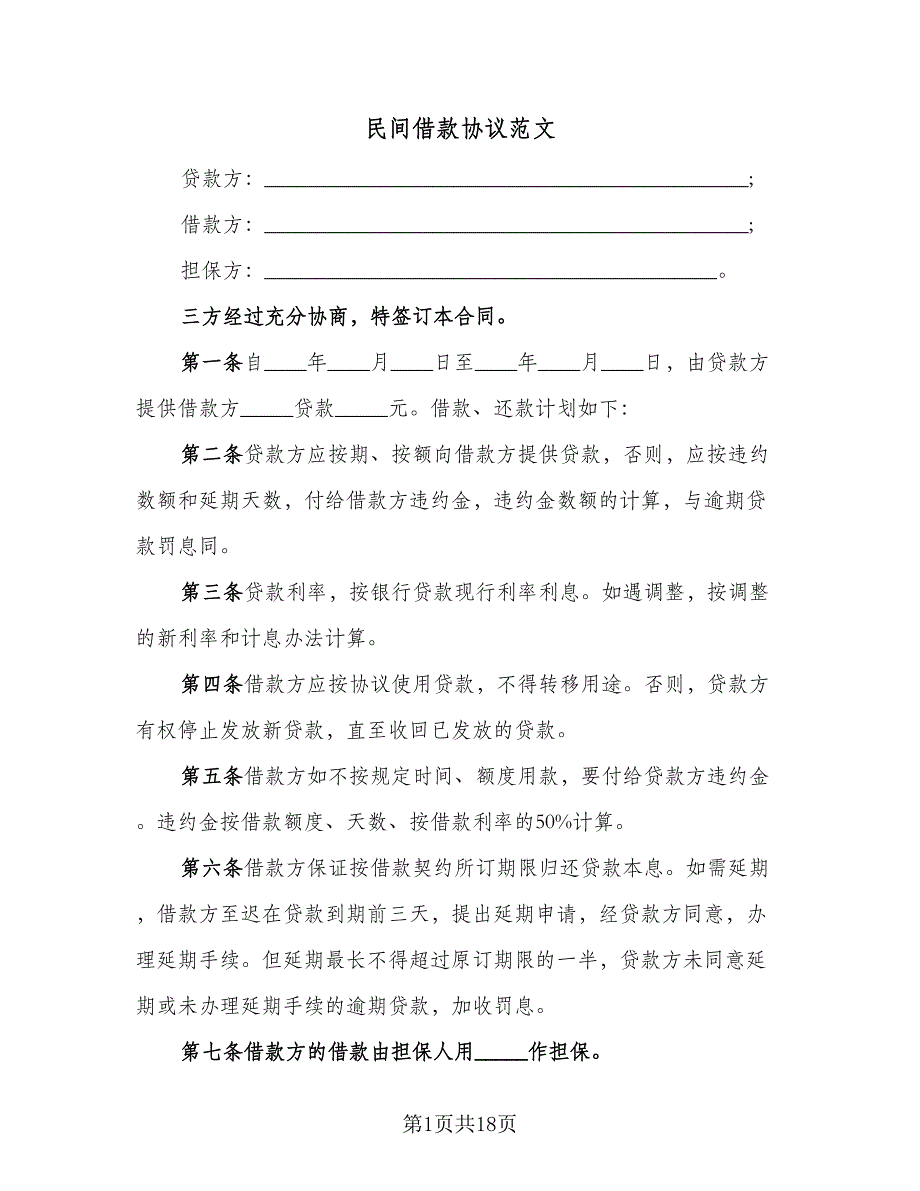 民间借款协议范文
贷款方：______________________________________________;
借款方：______________________________________________;
担保方：___________________________________________。
三方经过充分协商，特签订本合同。
第一条自____年____月____日至____年____月____日，由贷款方
提供借款方_____贷款_____元。借款、还款计划如下：
第二条贷款方应按期、按额向借款方提供贷款，否则，应按违约
数额和延期天数，付给借款方违约金，违约金数额的计算，与逾期贷
款罚息同。
第三条贷款利率，按银行贷款现行利率利息。如遇调整，按调整
的新利率和计息办法计算。
第四条借款方应按协议使用贷款，不得转移用途。否则，贷款方
有权停止发放新贷款，直至收回已发放的贷款。
第五条借款方如不按规定时间、额度用款，要付给贷款方违约金
。违约金按借款额度、天数、按借款利率的50%计算。
第六条借款方保证按借款契约所订期限归还贷款本息。如需延期
，借款方至迟在贷款到期前三天，提出延期申请，经贷款方同意，办
理延期手续。但延期最长不得超过原订期限的一半，贷款方未同意延
期或未办理延期手续的逾期贷款，加收罚息。
第七条借款方的借款由担保人用_____作担保。
第1页共18页